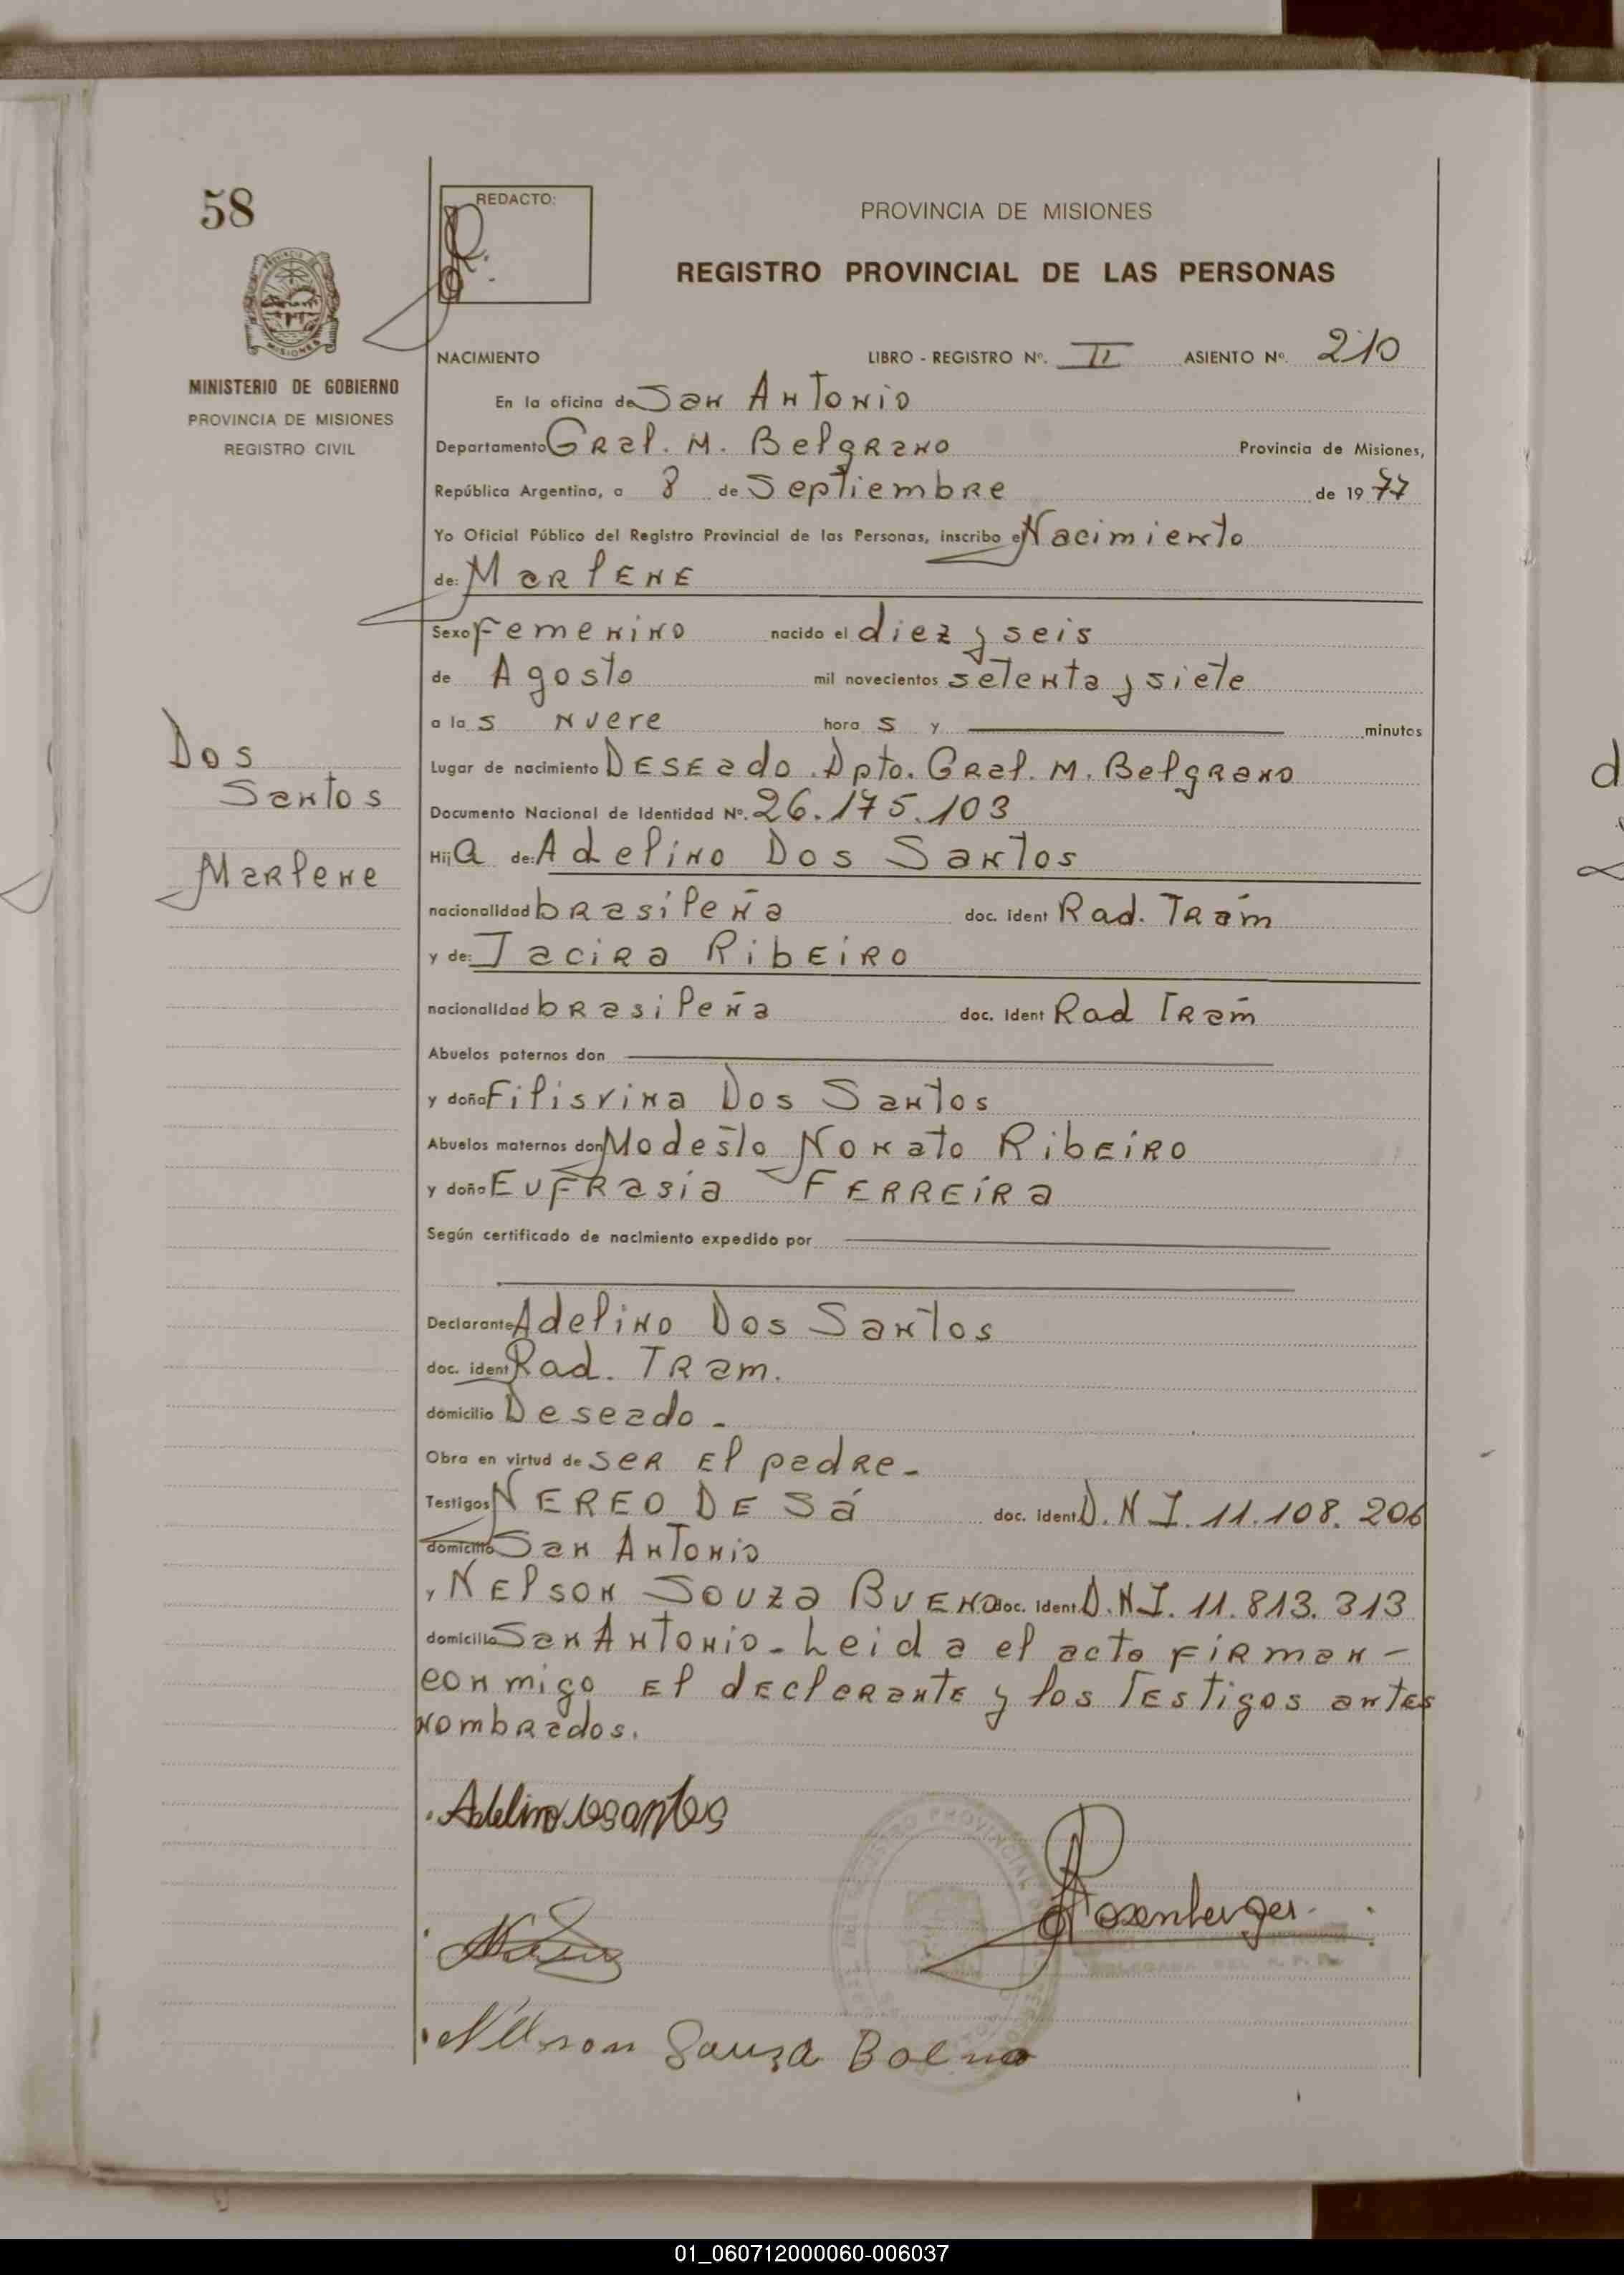 58
REDACTO:
PROVINCIA DE MISIONES
REGISTRO PROVINCIAL DE LAS PERSONAS
MINISTERIO DE GOBIERNO
PROVINCIA DE MISIONES
REGISTRO CIVIL
NACIMIENTO LIBRO - REGISTRO Nº. II ASIENTO Nº. 210
En la oficina de San Antonio
Departamento Gral. M. Belgrano Provincia de Misiones,
República Argentina, a 8 de Septiembre de 1977
Yo Oficial Público del Registro Provincial de las Personas, inscribo el Nacimiento
de: Marlene
Sexo Femenino nacido el diez y seis
de Agosto mil novecientos setenta y siete
a las nueve horas y minutos
Dos
Santos
Marlene
Lugar de nacimiento Deseado. Dpto. Gral. M. Belgrano
Documento Nacional de Identidad Nº. 26.175.103
Hija de: Adelino Dos Santos
nacionalidad brasileña doc. ident Rad. Trám
y de: Jacira Ribeiro
nacionalidad brasileña doc. ident Rad Trám
Abuelos paternos don
y doña Filisvina Dos Santos
Abuelos maternos don Modesto Nonato Ribeiro
y doña Eufrasia Ferreira
Según certificado de nacimiento expedido por
Declarante Adelino Dos Santos
doc. ident Rad. Tram.
domicilio Deseado -
Obra en virtud de ser el padre -
Testigos Nereo De Sá doc. ident D.N.I. 11.108.206
domicilio San Antonio
y Nelson Souza Bueno doc. ident. D.N.I. 11.813.313
domicilio San Antonio - Leida el acta firman -
conmigo el declarante y los testigos antes
nombrados.
Adelino dosantos
Rosenberger
DELEGADA DEL R.P.P.
Nelson Souza Boeno
01_060712000060-006037